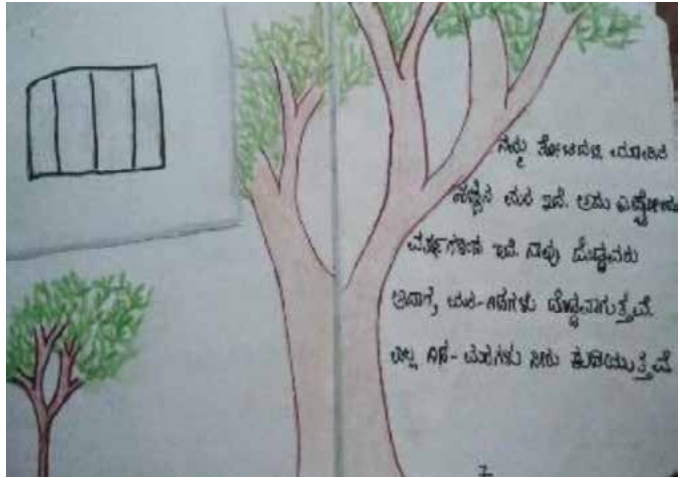 ನಮ್ಮ ತೋಟದಲ್ಲಿ ಮಾವಿನ
ಹಣ್ಣಿನ ಮರ ಇದೆ. ಅದು ಎಷ್ಟೋ
ವರ್ಷಗಳಿಂದ ಇದೆ. ನಾವು ದೊಡ್ಡವರು
ಆದಾಗ, ಮರ-ಗಿಡಗಳು ದೊಡ್ಡವಾಗುತ್ತವೆ.
ಎಲ್ಲ ಗಿಡ-ಮರಗಳು ನೀರು ಕುಡಿಯುತ್ತವೆ
7